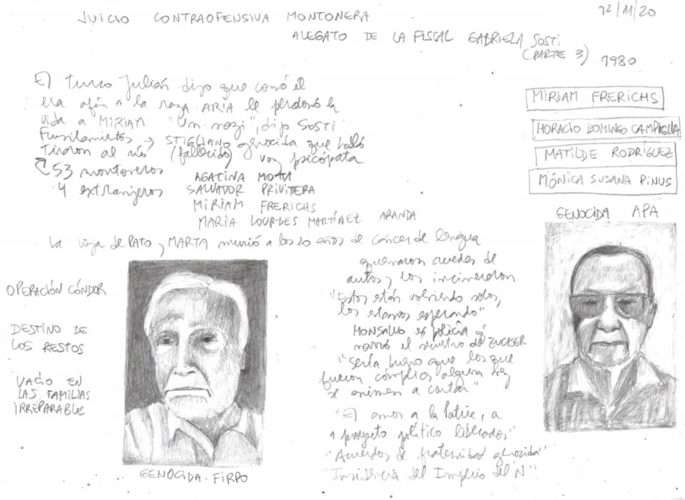 JUICIO CONTRAOFENSIVA MONTONERA
12/11/20
ALEGATO DE LA FISCAL GABRIELA SOSTI
(PARTE 3)
1980
El turco Julián dijo que como él
era afín a la raza ARIA le perdonó la
vida a MIRIAM "Un nazi", dijo SOSTI
Fusilamientos → STIGLIANO genocida que habló
Tiraron al río (fallecido) voz psicópata
53 montoneros AGATINA MOTTA
4 extranjeros SALVADOR PRIVITERA
MIRIAM FRERICHS
MARIA LOURDES MARTÍNEZ ARANDA
MIRIAM FRERICHS
HORACIO DOMINGO CAMPIGLIA
MATILDE RODRÍGUEZ
MÓNICA SUSANA PINUS
GENOCIDA APA
La hija de PATO y MARTA murió a los 20 años de cáncer de lengua
quemaron cuerdas de
autos y los incineraron
"Estos están volviendo solos,
los estamos esperando"
MONSALVO es policía q
narró el secuestro de ZUCKER
"Sería bueno que los que
fueron cómplices alguna vez
se animen a contar"
"El amor a la patria, a
1 proyecto político liberador"
"Acuerdos de fraternidad genocida"
del Imperio del N"
OPERACIÓN CÓNDOR
DESTINO DE
LOS RESTOS
VACÍO EN
LAS FAMILIAS
IRREPARABLE
GENOCIDA - FIRPO